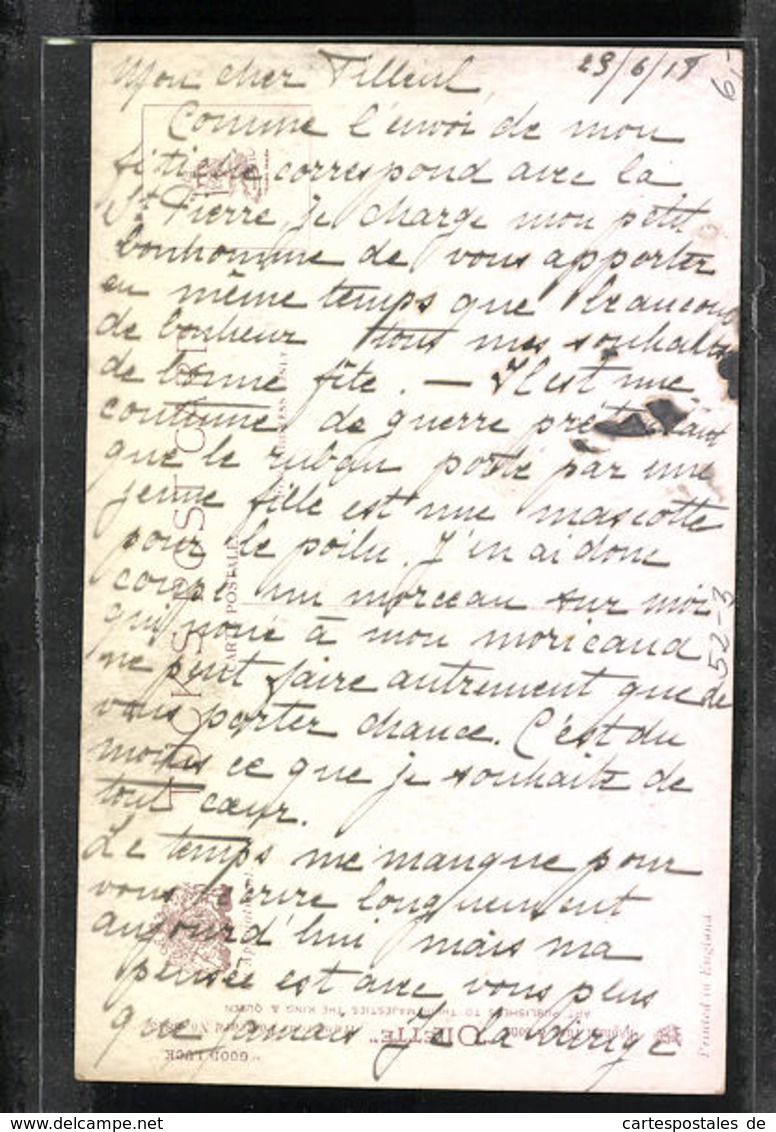 Mon cher Filleul, 29/6/18
Comme l'envoi de mon
fétiche correspond avec la
St Pierre, je charge mon petit
bonhomme de vous apporter
en même temps que beaucoup
de bonheur tous mes souhaits
de bonne fête. — Il est une
coutume de guerre
que le ruban porté par une
jeune fille est une mascotte
pour le poilu. J'en ai donc
coupé un morceau sur moi
qui noué à mon moricaud
ne peut faire autrement que de
vous porter chance. C'est du
moins ce que je souhaite de
tout cœur.
Le temps me manque pour
vous écrire longuement
aujourd'hui mais ma
pensée est avec vous plus
que jamais je la dirige
52-3
TUCK'S POST CARD
CARTE POSTALE
ART PUBLISHERS TO THEIR MAJESTIES THE KING & QUEEN
"OILETTE"
"GOOD LUCK
Printed in England
cartespostales de